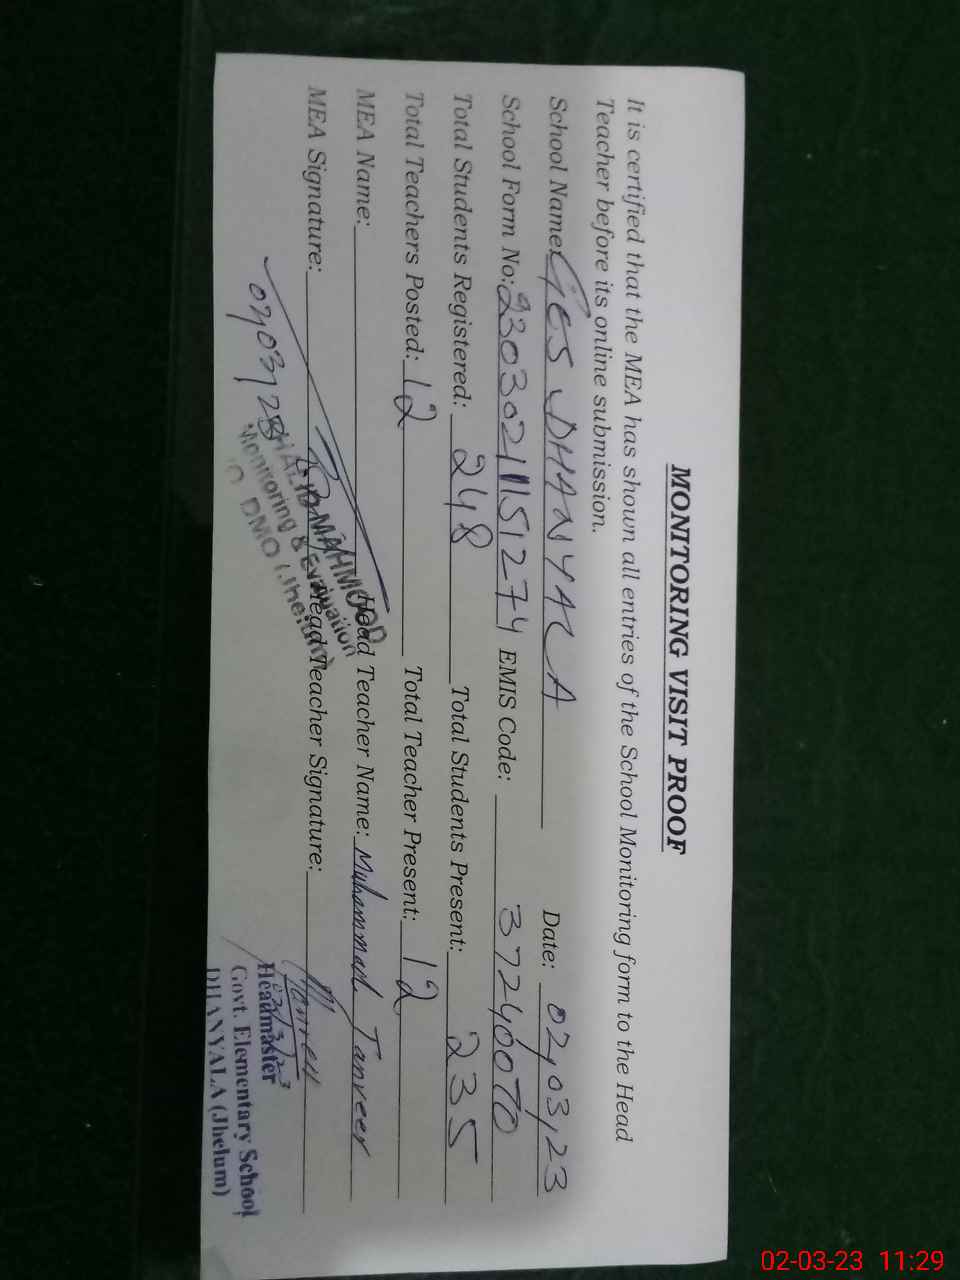 MONITORING VISIT PROOF
It is certified that the MEA has shown all entries of the School Monitoring form to the Head
Teacher before its online submission.
School Name: GES DHANYALA Date: 02,03,23
School Form No: 2303021115127 EMIS Code: 37240070
Total Students Registered: 248 Total Students Present: 235
Total Teachers Posted: 12 Total Teacher Present: 12
MEA Name: Head Teacher Name: Muhammad Tanveer
MEA Signature: Head Teacher Signature: Tanveer
02,03,23
KHALID MAHMOOD
Monitoring & Evaluation
DMO (Jhelum)
02/3/23
Headmaster
Govt. Elementary School
DHANYALA (Jhelum)
02-03-23 11:29